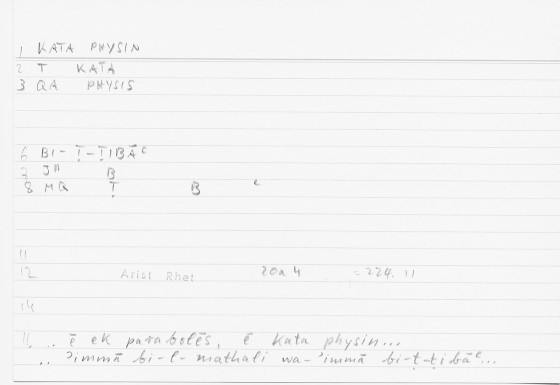 1 KATA PHYSIN
2 T KATA
3 QA PHYSIS
6 BI-Ṭ-ṬIBĀʿ
7 JA B
8 MQ Ṭ B ʿ
11
12 Arist Rhet 20a 4 = 224. 11
14
.. ē ek parabolēs, ē kata physin...
.. ʾimmā bi-l-mathali wa-ʾimmā bi-ṭ-ṭibāʿ...